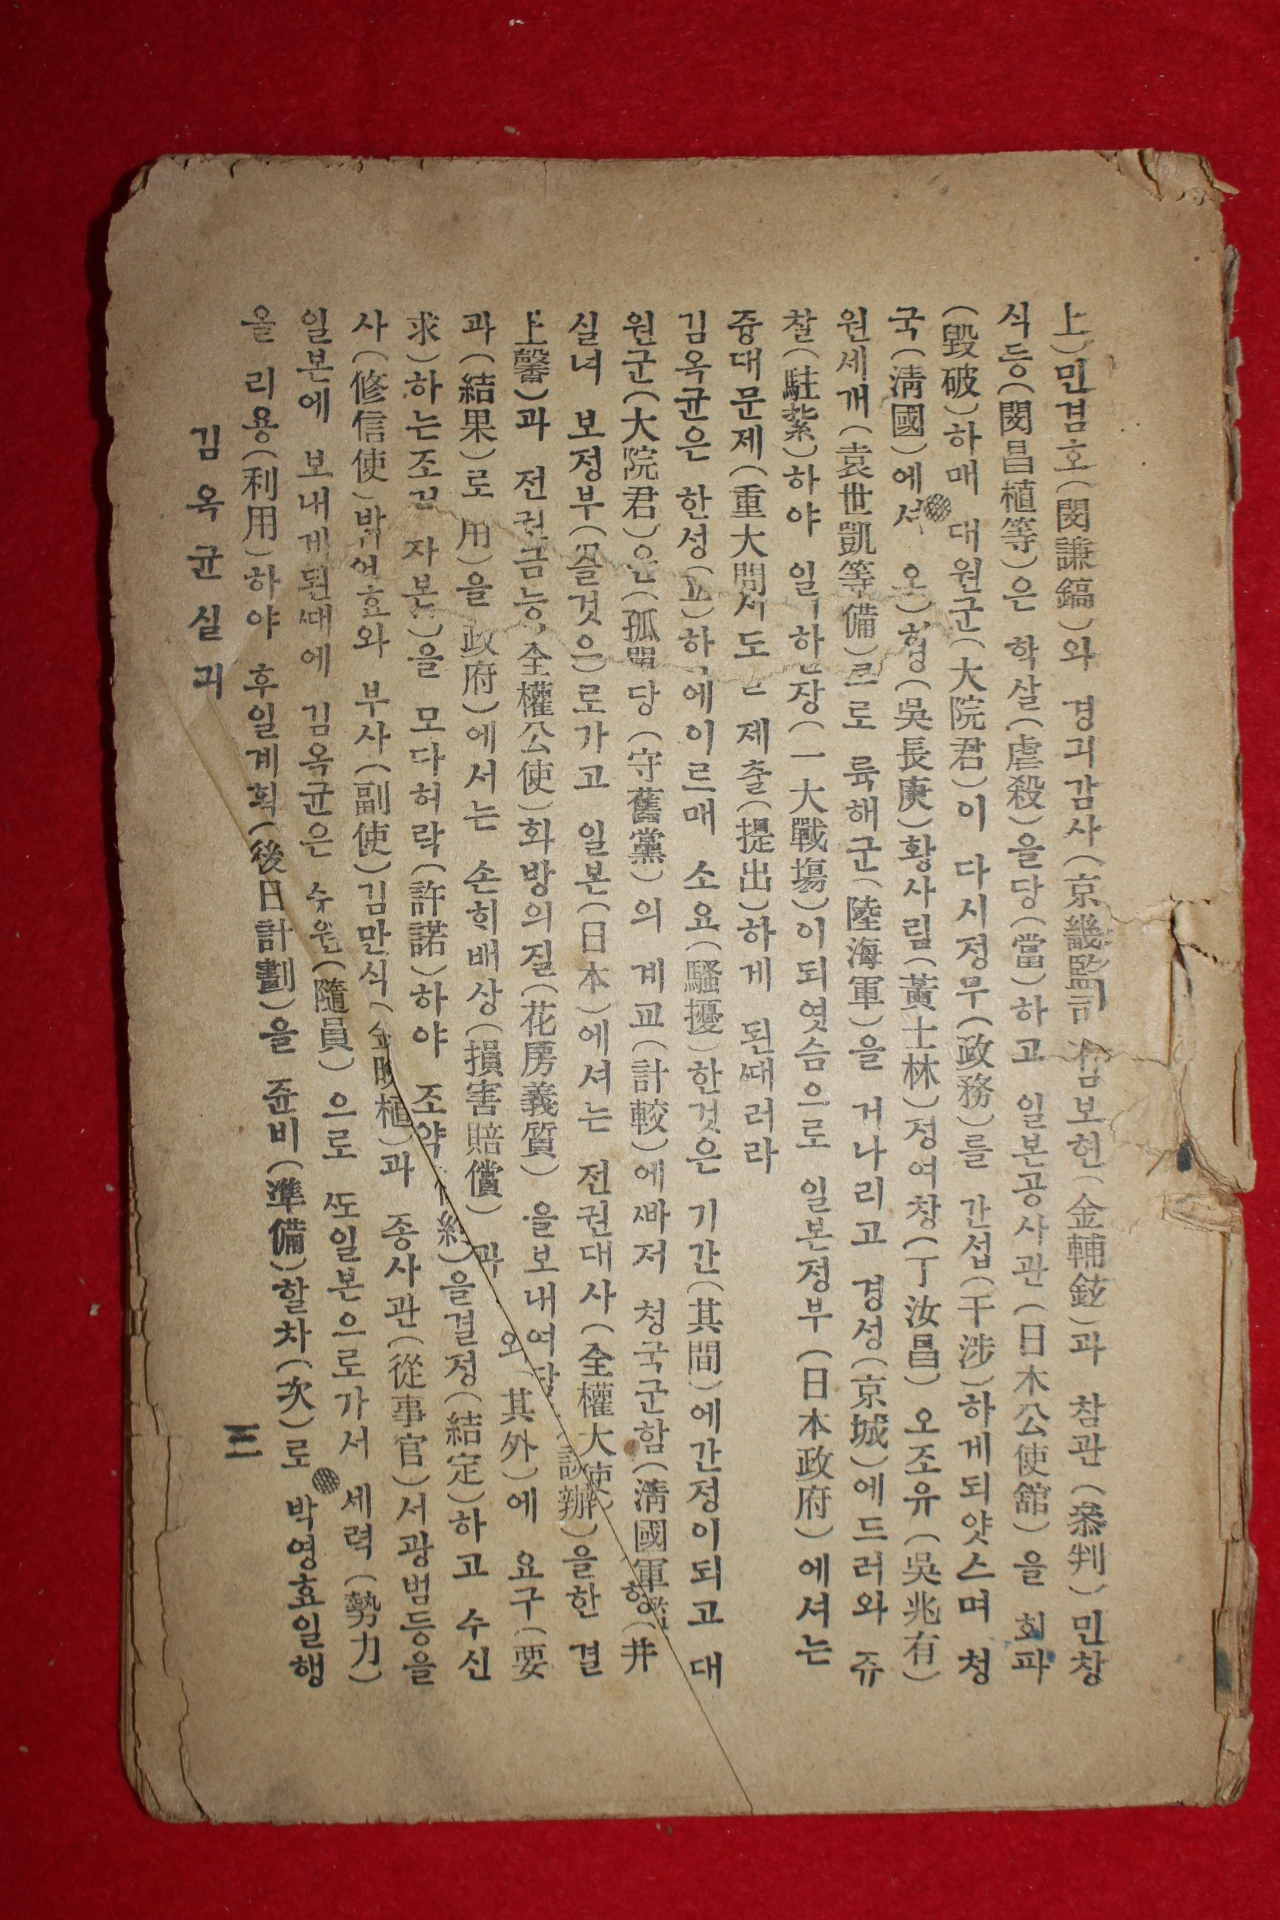 上)민겸호(閔謙鎬)와 경긔감사(京畿監司 김보헌(金輔鉉)과 참관(叅判)민창
식등(閔昌植等)은 학살(虐殺)을당(當)하고 일본공사관(日本公使舘)을 회파
(毁破)하매 대원군(大院君)이 다시정무(政務)를 간섭(干涉)하게되얏스며 청
국(淸國)에서 오 형(吳長庚)황사림(黃士林)정여창(丁汝昌)오조유(吳兆有)
원세개(袁世凱等備)르로 륙해군(陸海軍)을 거나리고 경성(京城)에드러와 쥬
찰(駐紮)하야 일 하 장(一大戰塲)이되엿슴으로 일본정부(日本政府)에셔는
즁대문제(重大問 도 제출(提出)하게 된때러라
김옥균은 한성( )하 에이르매 소요(騷擾)한것은 기간(其間)에간정이되고 대
원군(大院君)은(孤 당(守舊黨)의 계교(計較)에빠저 청국군함(淸國軍艦
실녀 보정부( 것은)로가고 일본(日本)에셔는 전권대사(全權大使)
上馨)과 전권금능 全權公使)화방의질(花房義質)을보내여담 (談辦)을한 결
과(結果)로 用)을 政府)에서는 손해배상(損害賠償)과 외(其外)에 요구(要
求)하는조건 자본 을 모다허락(許諾)하야 조약 約)을결정(結定)하고 수신
사(修信使)박영효와 부사(副使)김만식(金晩植)과 종사관(從事官)서광범등을
일본에 보내게된때에 김옥균은 수원(隨員)으로 또일본으로가서 세력(勢力)
을 리용(利用)하야 후일계획(後日計劃)을 쥰비(準備)할차(次)로 박영효일행
김옥균실긔
三